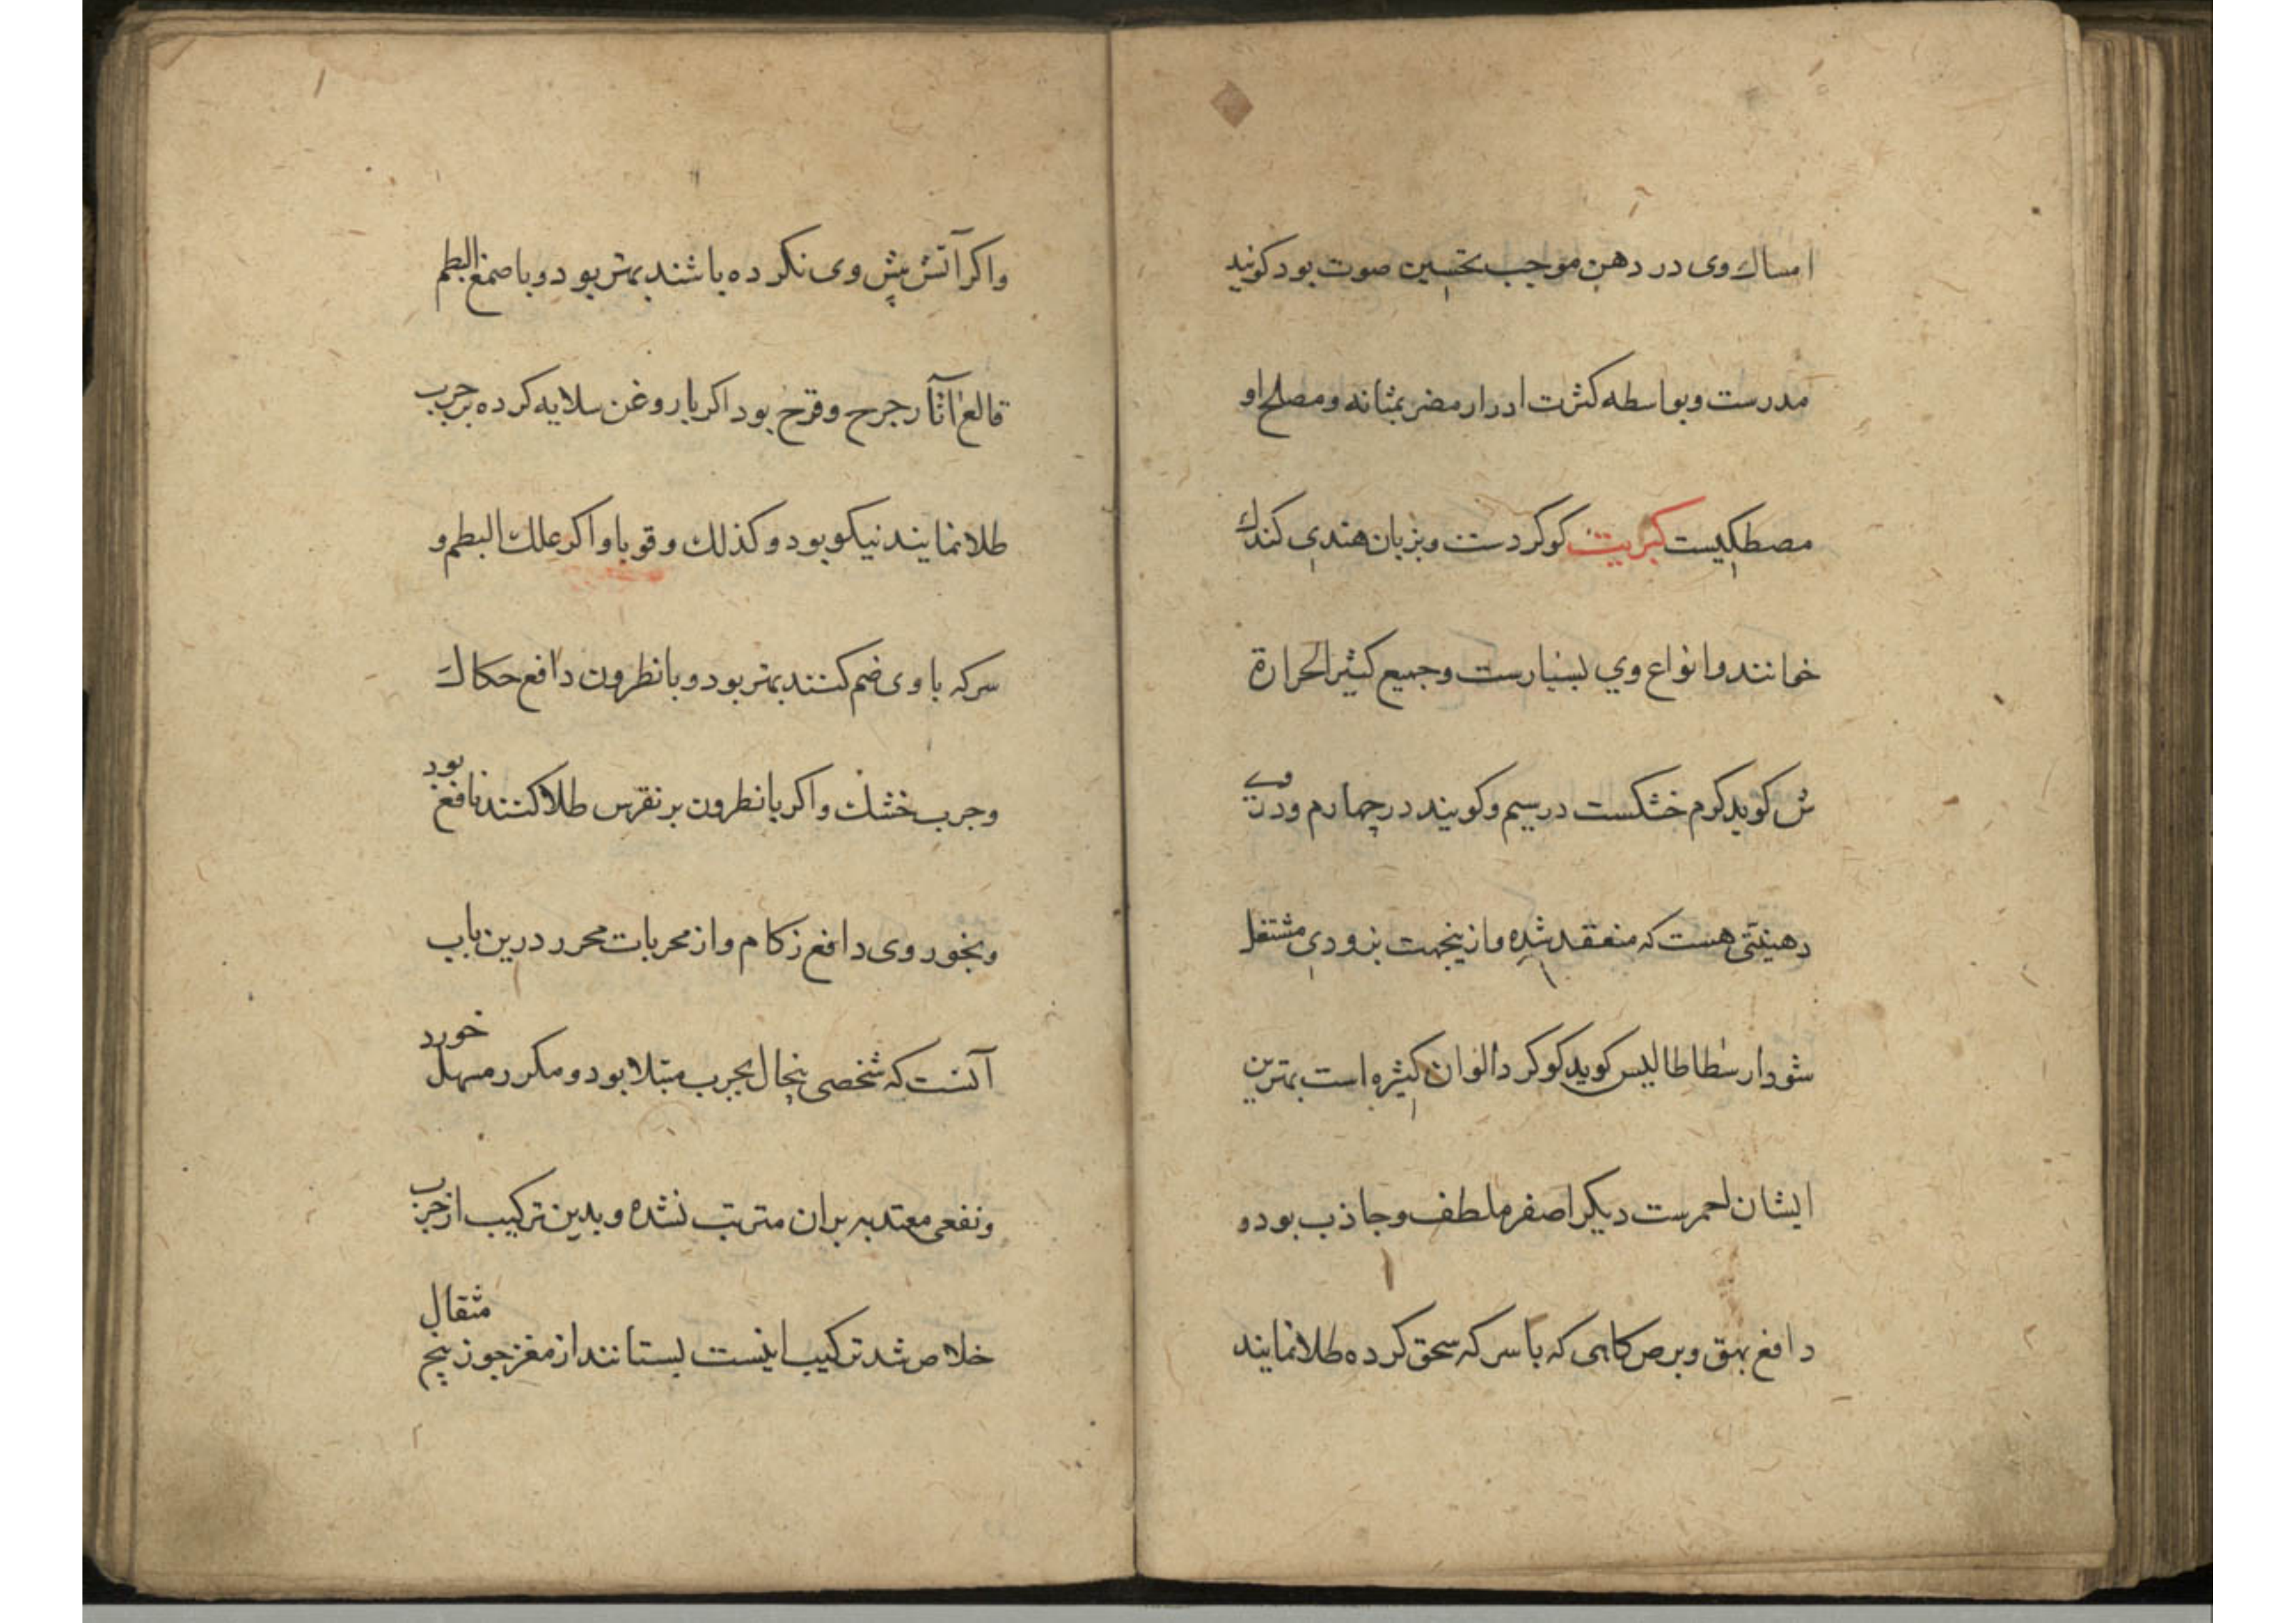 امساك وی در دهن موجب تحسین صوت بود کویند
مدرست وبواسطه کثرت ادرار مضر بمثانه ومصلح او
مصطکیست کبریت کوکردست وبزبان هندی کندك
خوانند وانواع وي بسیارست وجمیع کثیر الحرارة
ش کوید کرم خشکست درسیم وکویند درچهارم ودر وی
دهنیتی هست که منعقد شده وازینجهت بزودی مشتعل
شود ارسطاطالیس کوید کوکرد الوان کثیره است بهترین
ایشان احمرست دیکر اصفر ملطف وجاذب بود و
دافع بهق وبرص کاهی که با سرکه سحق کرده طلا نمایند
واکر آتش پش وی نکرده باشند بهتر بود وبا صمغ البطم
قالع اثار جرح وقرح بود اکر با روغن سلایه کرده بر جرب
طلا نمایند نیکو بود وکذلك وقوبا واکر علك البطم و
سرکه با وی ضم کنند بهتر بود وبا نطرون دافع حکاك
وجرب خشك واکر با نطرون بر نقرس طلا کنند نافع بود
وبخور وی دافع زکام واز محربات محرر درین باب
آنست که شخصی پنجال بجرب مبتلا بود ومکرر مسهل خورد
ونفعی معتد به بران مترتب نشده وبدین ترکیب از جرب
خلاص شد ترکیب اینست بستانند از مغز جوز پنج مثقال